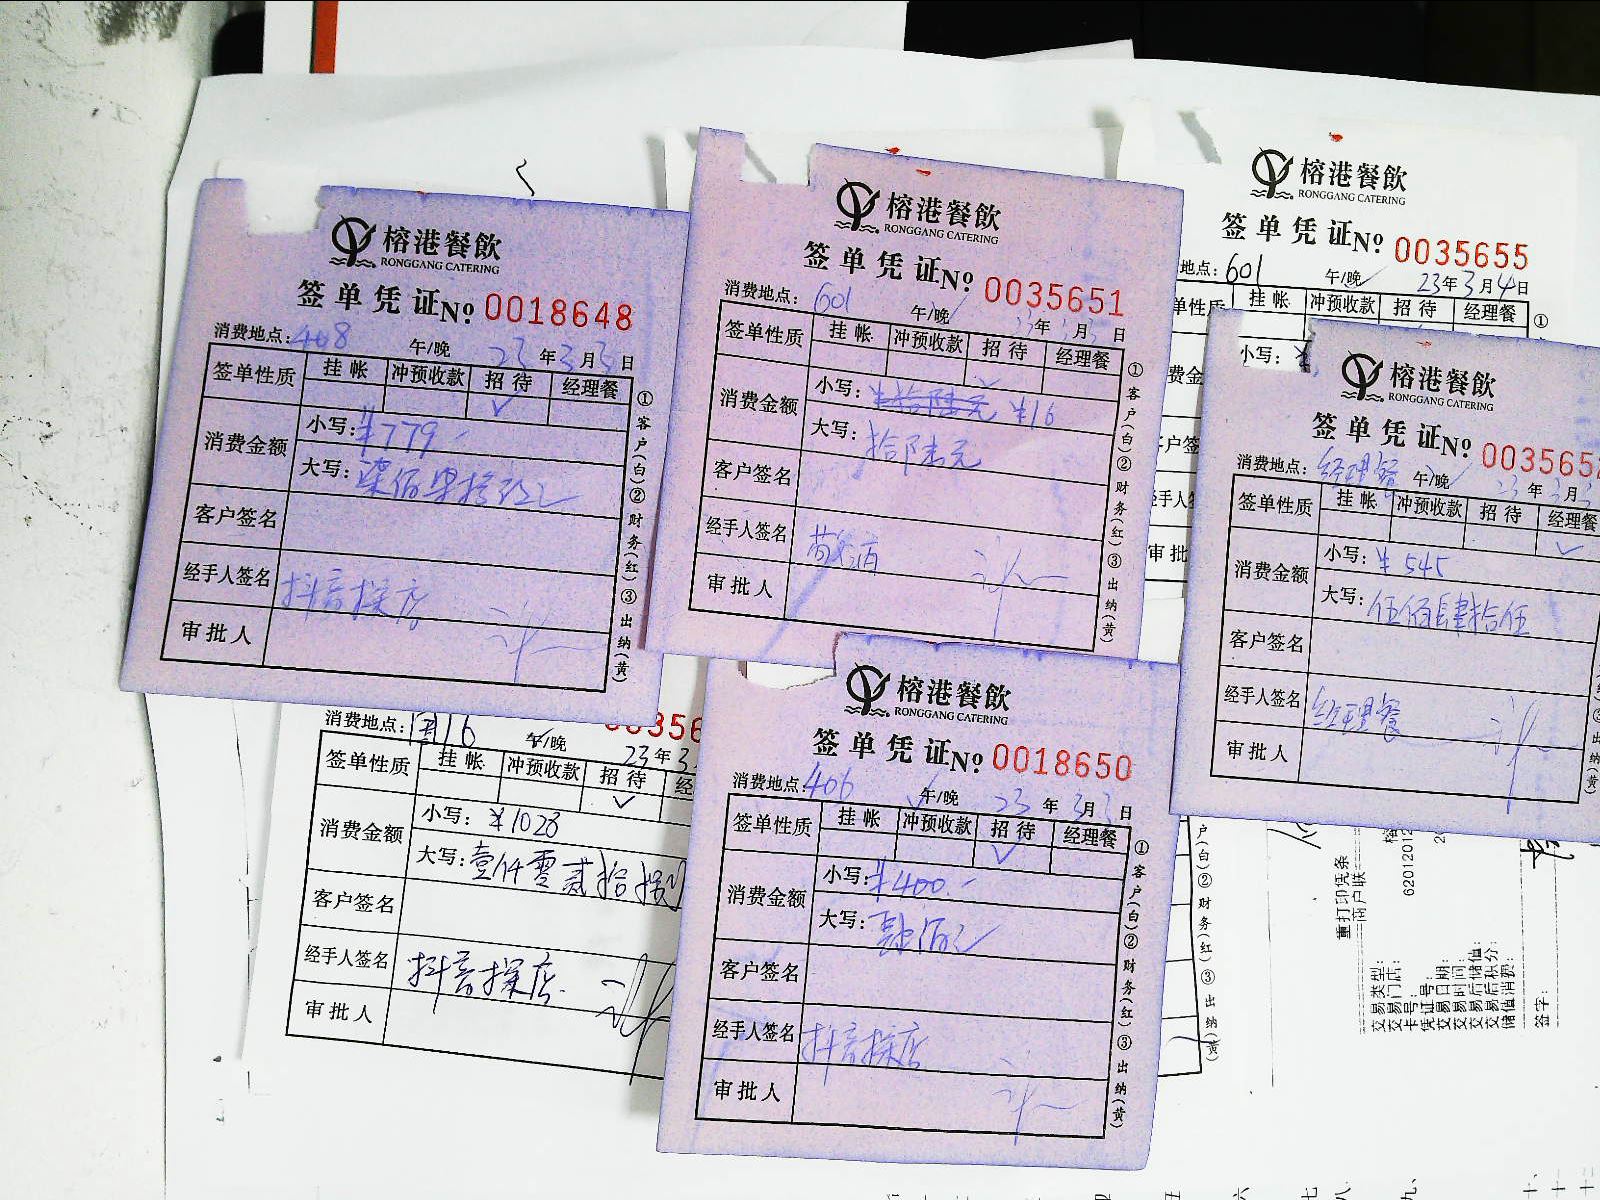 榕港餐飲
RONGGANG CATERING
签单凭证No 0018648
消费地点: 408 午/晚 23年3月3日
签单性质 挂帐 冲预收款 招待 经理餐
✓
消费金额 小写: ¥779.-
大写: 柒佰柒拾玖元
客户签名
经手人签名 抖音探店
审批人
①客户(白)②财务(红)③出纳(黄)
榕港餐飲
RONGGANG CATERING
签单凭证No 0035651
消费地点: 601 午/晚 23年3月3日
签单性质 挂帐 冲预收款 招待 经理餐
✓
消费金额 小写: ¥16
大写: 拾陆元
客户签名
经手人签名
审批人
①客户(白)②财务(红)③出纳(黄)
榕港餐飲
RONGGANG CATERING
签单凭证No 0035655
地点: 601 午/晚 23年3月4日
单性质 挂帐 冲预收款 招待 经理餐
小写: ¥
费金
审批
①
榕港餐飲
RONGGANG CATERING
签单凭证No 003565
消费地点: 经理餐 午/晚 23年3月
签单性质 挂帐 冲预收款 招待 经理餐
✓
消费金额 小写: ¥545
大写: 伍佰肆拾伍
客户签名
经手人签名 经理餐
审批人
消费地点: 国16 午/晚 23年3
签单性质 挂帐 冲预收款 招待 经
✓
消费金额 小写: ¥1028
大写: 壹仟零贰拾捌
客户签名
经手人签名 抖音探店
审批人
榕港餐飲
RONGGANG CATERING
签单凭证No 0018650
消费地点: 406 午/晚 23年3月3日
签单性质 挂帐 冲预收款 招待 经理餐
✓
消费金额 小写: ¥400.-
大写: 肆佰元
客户签名
经手人签名 抖音探店
审批人
①客户(白)②财务(红)③出纳(黄)
户(白)②财务(红)③出纳(黄)
重打印凭条
商户联
交易类型:
交易门店:
卡号:
凭证号:
交易日期:
交易时间:
交易后储值:
交易后积分:
储值消费:
签字:
6201201
六
七
八
九、
十、
十一
十二